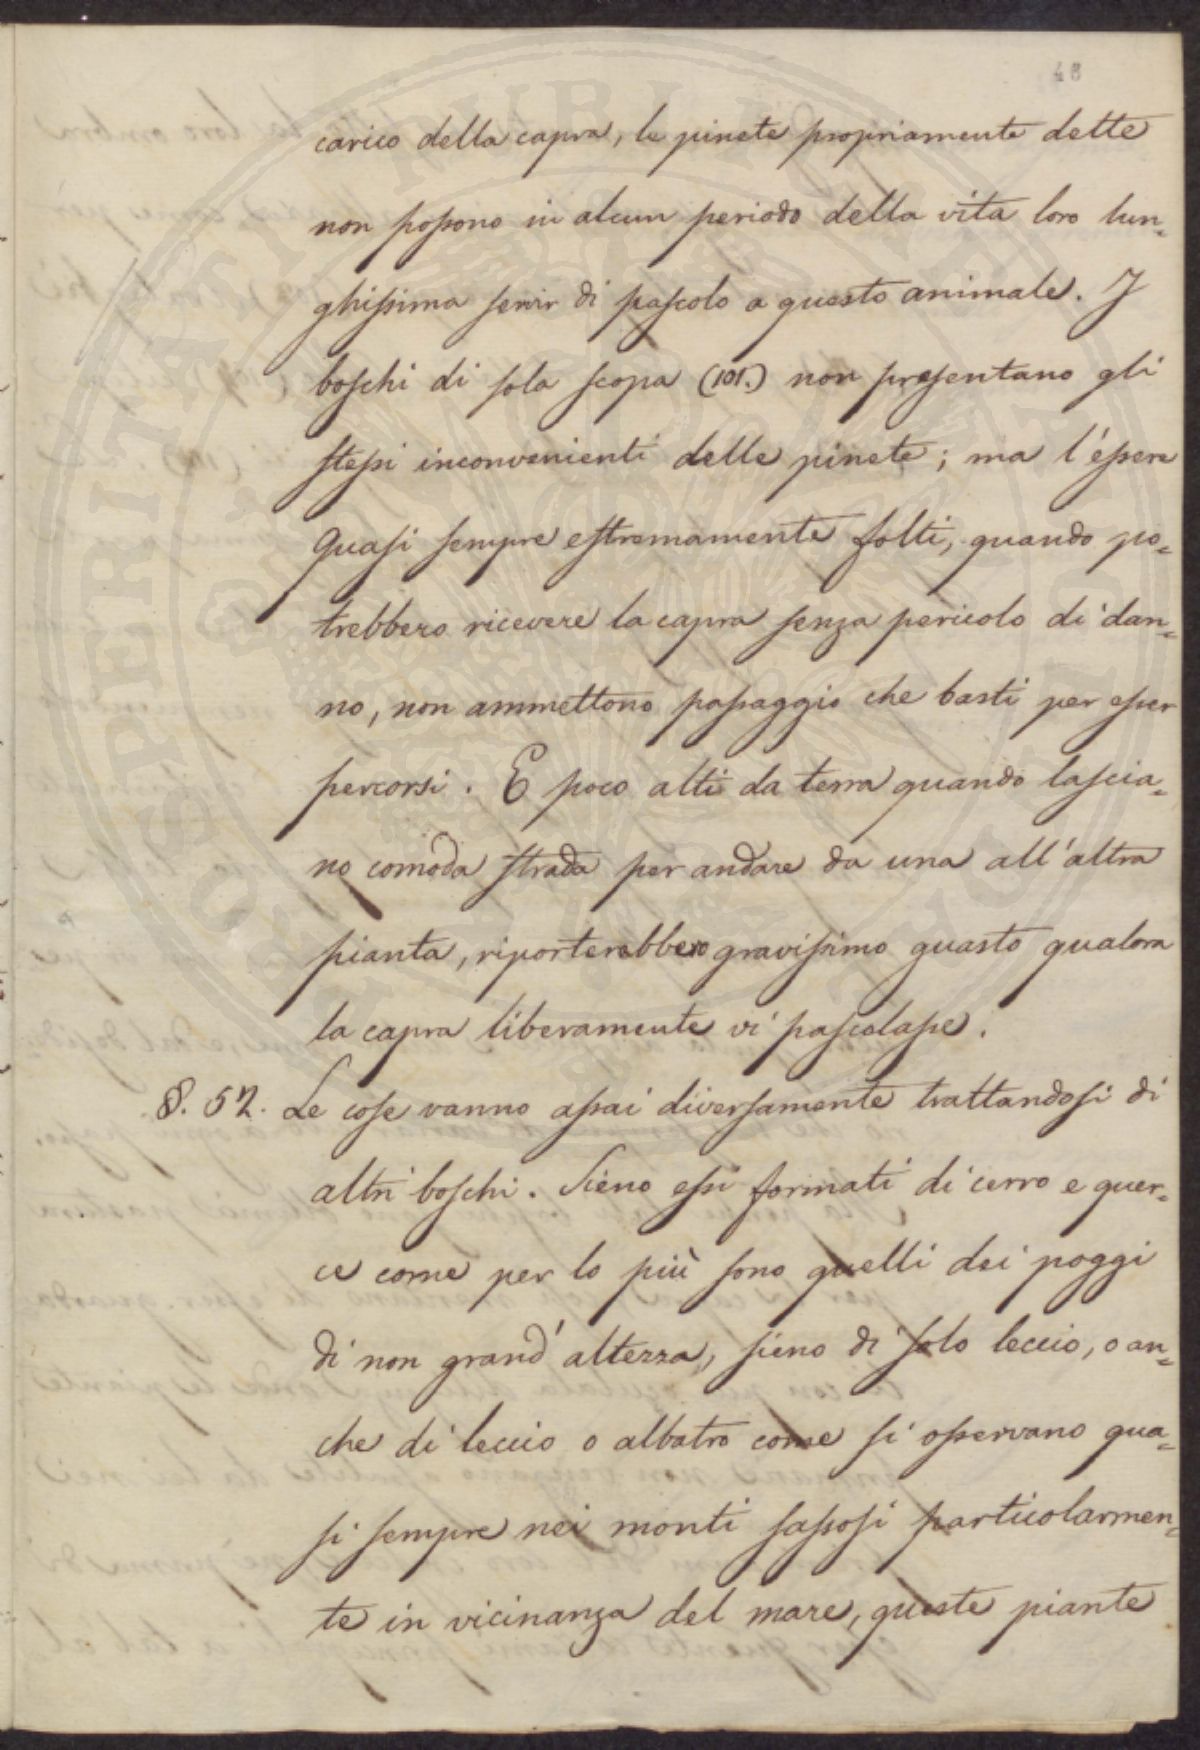 48
carico della capra, le pinete propriamente dette
non possono in alcun periodo della vita loro lun=
ghissima servir di pascolo a questo animale. I
boschi di sola scopa (101.) non presentano gli
stessi inconvenienti delle pinete; ma l'éssere
quasi sempre estremamente folti, quando po=
trebbero ricevere la capra senza pericolo di dan=
no, non ammettono passaggio che basti per esser
percorsi. E poco alti da terra quando lascia=
no comoda strada per andare da una all'altra
pianta, riporterebbero gravissimo guasto qualora
la capra liberamente vi pascolasse.
§. 52. Le cose vanno assai diversamente trattandosi di
altri boschi. Sieno essi formati di cerro e quer=
ce come per lo più sono quelli dei poggi
di non grand'altezza, sieno di solo leccio, o an=
che di leccio o albatro come si osservano qua=
si sempre nei monti sassosi particolarmen=
te in vicinanza del mare, queste piante